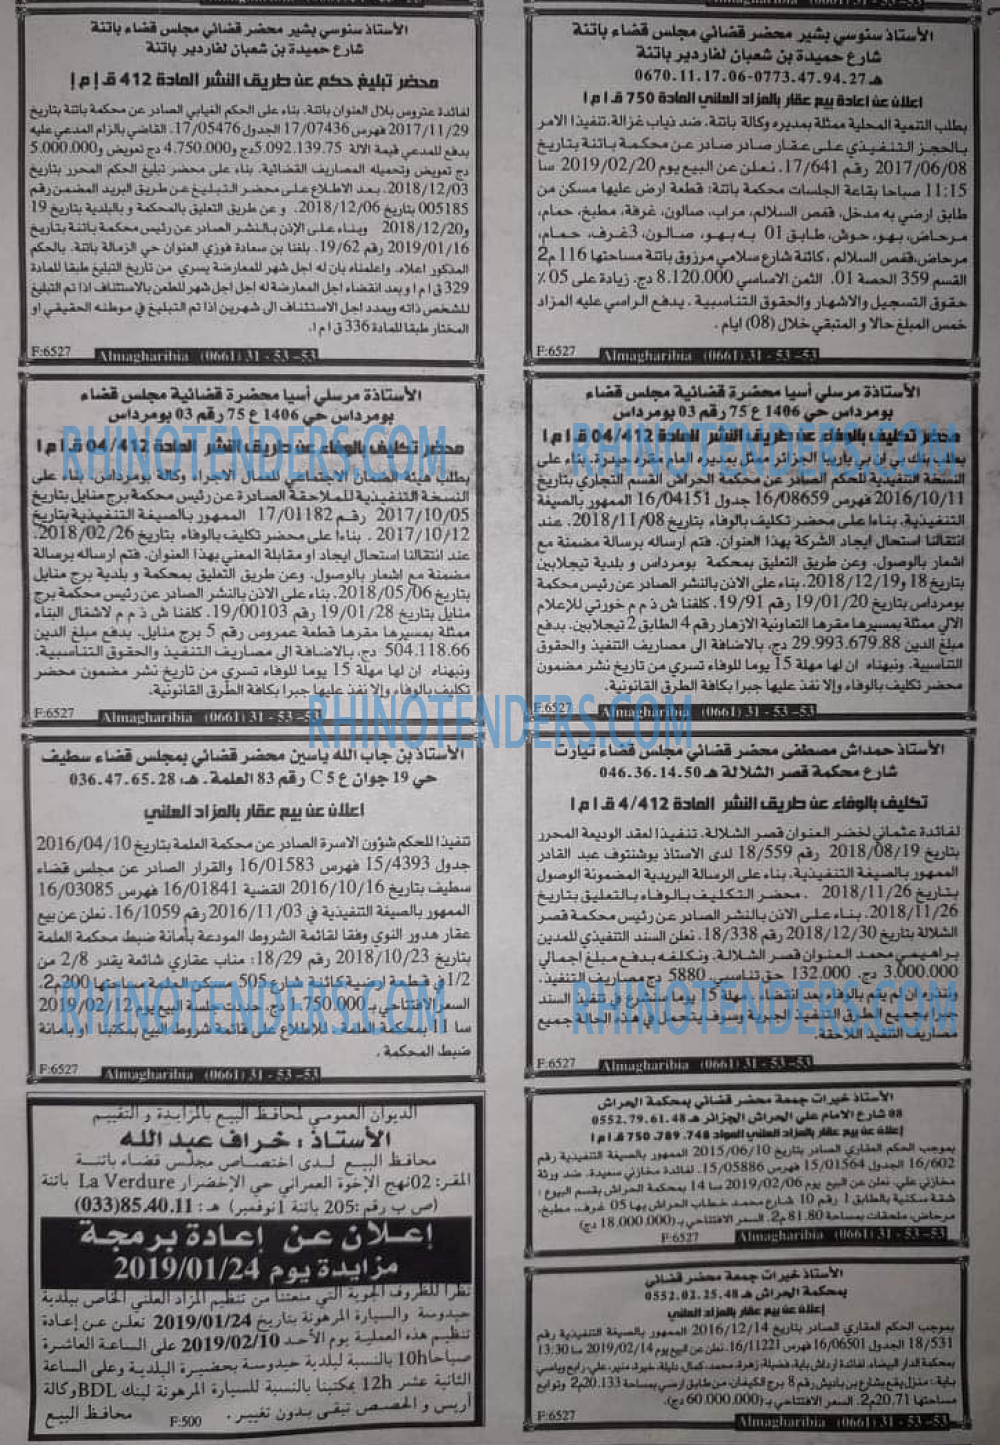 الأستاذ سنوسي بشير محضر قضائي مجلس قضاء باتنة
شارع حميدة بن شعبان لفاردير باتنة
هـ 0773.47.94.27-0670.11.17.06
اعلان عن اعادة بيع عقار بالمزاد العلني المادة 750 ق ا م ا
بطلب التنمية المحلية ممثلة بمديره وكالة باتنة. ضد ذياب غزالة. تنفيذا الامر
بالحجز التنفيذي على عقار صادر صادر عن محكمة باتنة بتاريخ
2017/06/08 رقم 17/641. نعلن عن البيع يوم 2019/02/20 سا
11:15 صباحا بقاعة الجلسات محكمة باتنة: قطعة ارض عليها مسكن من
طابق ارضي به مدخل، قفص السلالم، مراب، صالون، غرفة، مطبخ، حمام،
مرحاض، بهو، حوش، طابق 01 به بهو، صالون، 3غرف، حمام،
مرحاض، قفص السلالم، كائنة شارع سلامي مرزوق باتنة مساحتها 116 م2
القسم 359 الحصة 01. الثمن الاساسي 8.120.000 دج. زيادة على 05 %
حقوق التسجيل والاشهار والحقوق التناسبية. يدفع الراسي عليه المزاد
خمس المبلغ حالا و المتبقي خلال (08) ايام.
F:6527
Almagharibia (0661) 31 - 53 -53
الأستاذ سنوسي بشير محضر قضائي مجلس قضاء باتنة
شارع حميدة بن شعبان لفاردير باتنة
محضر تبليغ حكم عن طريق النشر المادة 412 ق إ م إ
لفائدة عتروس بلال العنوان باتنة. بناء على الحكم الغيابي الصادر عن محكمة باتنة بتاريخ
2017/11/29 فهرس 17/07436 الجدول 17/05476. القاضي بالزام المدعي عليه
بدفع للمدعي قيمة الالة 5.092.139.75دج و4.750.000 دج تعويض و5.000.000
دج تعويض وتحميله المصاريف القضائية. بناء على محضر تبليغ الحكم المحرر بتاريخ
2018/12/03. بعد الاطلاع على محضر التبليغ عن طريق البريد المضمن رقم
005185 بتاريخ 2018/12/06. و عن طريق التعليق بالمحكمة و بالبلدية بتاريخ 19
و2018/12/20 وبناء على الإذن بالنشر الصادر عن رئيس محكمة باتنة بتاريخ
2019/01/16 رقم 19/62. بلغنا بن سعادة فوزي العنوان حي الزمالة باتنة. بالحكم
المذكور اعلاه. واعلمناه بان له اجل شهر للمعارضة يسري من تاريخ التبليغ طبقا للمادة
329 ق ا م ا و بعد انقضاء اجل المعارضة له اجل اجل شهر للطعن بالاستئناف اذا تم التبليغ
للشخص ذاته ويمدد اجل الاستئناف الى شهرين اذا تم التبليغ في موطنه الحقيقي او
المختار طبقا للمادة 336 ق ا م ا.
F:6527
Almagharibia (0661) 31 - 53 -53
الأستاذة مرسلي أسيا محضرة قضائية مجلس قضاء
بومرداس حي 1406 ع 75 رقم 03 بومرداس
محضر تكليف بالوفاء عن طريق النشر المادة 04/412 ق ا م ا
بطلب بنك بي ان بي باريبا الجزائر ممثل بمديره العام مقره حيدرة. بناء على
النسخة التنفيذية للحكم الصادر عن محكمة الحراش القسم التجاري بتاريخ
2016/10/11 فهرس 16/08659 جدول 16/04151 الممهور بالصيغة
التنفيذية. بناءا على محضر تكليف بالوفاء بتاريخ 2018/11/08. عند
انتقالنا استحال ايجاد الشركة بهذا العنوان. فتم ارساله برسالة مضمنة مع
اشعار بالوصول. وعن طريق التعليق بمحكمة بومرداس و بلدية تيجلابين
بتاريخ 18 و2018/12/19. بناء على الاذن بالنشر الصادر عن رئيس محكمة
بومرداس بتاريخ 19/01/20 رقم 19/91. كلفنا ش ذ م م خورتي للإعلام
الالي ممثلة بمسيرها مقرها التعاونية الازهار رقم 4 الطابق 2 تيجلابين. بدفع
مبلغ الدين 29.993.679.88 دج، بالاضافة الى مصاريف التنفيذ والحقوق
التناسبية. ونبهناه ان لها مهلة 15 يوما للوفاء تسري من تاريخ نشر مضمون
محضر تكليف بالوفاء وإلا نفذ عليها جبرا بكافة الطرق القانونية.
F:6527
Almagharibia (0661) 31 - 53 -53
الأستاذة مرسلي أسيا محضرة قضائية مجلس قضاء
بومرداس حي 1406 ع 75 رقم 03 بومرداس
محضر تكليف بالوفاء عن طريق النشر المادة 04/412 ق ا م ا
بطلب هيئة الضمان الاجتماعي للعمال الاجراء وكالة بومرداس. بناء على
النسخة التنفيذية للملاحقة الصادرة عن رئيس محكمة برج منايل بتاريخ
2017/10/05 رقم 17/01182 الممهور بالصيغة التنفيذية بتاريخ
2017/10/12. بناءا على محضر تكليف بالوفاء بتاريخ 2018/02/26.
عند انتقالنا استحال ايجاد او مقابلة المعني بهذا العنوان. فتم ارساله برسالة
مضمنة مع اشعار بالوصول. وعن طريق التعليق بمحكمة و بلدية برج منايل
بتاريخ 2018/05/06. بناء على الاذن بالنشر الصادر عن رئيس محكمة برج
منايل بتاريخ 19/01/28 رقم 19/00103. كلفنا ش ذ م م لاشغال البناء
ممثلة بمسيرها مقرها قطعة عمروس رقم 5 برج منايل. بدفع مبلغ الدين
504.118.66 دج، بالاضافة الى مصاريف التنفيذ والحقوق التناسبية.
ونبهناه ان لها مهلة 15 يوما للوفاء تسري من تاريخ نشر مضمون محضر
تكليف بالوفاء وإلا نفذ عليها جبرا بكافة الطرق القانونية.
F:6527
Almagharibia (0661) 31 - 53 -53
الأستاذ حمداش مصطفى محضر قضائي مجلس قضاء تيارت
شارع محكمة قصر الشلالة هـ 046.36.14.50
تكليف بالوفاء عن طريق النشر المادة 4/412 ق ا م ا
لفائدة عثماني لخضر العنوان قصر الشلالة. تنفيذا لعقد الوديعة المحرر
بتاريخ 2018/08/19 رقم 18/559 لدى الاستاذ بوشنتوف عبد القادر
الممهور بالصيغة التنفيذية. بناء على الرسالة البريدية المضمونة الوصول
بتاريخ 2018/11/26. محضر التكليف بالوفاء بالتعليق بتاريخ
2018/11/26. بناء على الاذن بالنشر الصادر عن رئيس محكمة قصر
الشلالة بتاريخ 2018/12/30 رقم 18/338. نعلن السند التنفيذي للمدين
براهيمي محمد العنوان قصر الشلالة. ونكلفه بدفع مبلغ اجمالي
3.000.000 دج. 132.000 حق تناسبي. 5880 دج مصاريف التنفيذ.
وننذره ان لم يقم بالوفاء بعد انقضاء مهلة 15 يوما سنشرع في تنفيذ السند
جبرا بجميع الطرق التنفيذ الجبرية وسوف يتحمل في هذه الحالة جميع
مصاريف التنفيذ اللاحقة.
F:6527
Almagharibia (0661) 31 - 53 -53
الأستاذ بن جاب الله ياسين محضر قضائي بمجلس قضاء سطيف
حي 19 جوان ع C 5 رقم 83 العلمة. هـ: 036.47.65.28
اعلان عن بيع عقار بالمزاد العلني
تنفيذا للحكم شؤون الاسرة الصادر عن محكمة العلمة بتاريخ 2016/04/10
جدول 15/4393 فهرس 16/01583 والقرار الصادر عن مجلس قضاء
سطيف بتاريخ 2016/10/16 القضية 16/01841 فهرس 16/03085
الممهور بالصيغة التنفيذية في 2016/11/03 رقم 16/1059. نعلن عن بيع
عقار هدور النوي وفقا لقائمة الشروط المودعة بأمانة ضبط محكمة العلمة
بتاريخ 2018/10/23 رقم 18/29: مناب عقاري شائعة يقدر 2/8 من
1/2 في قطعة ارضية كائنة شارع 505 مسكن العلمة مساحتها 200م2.
السعر الافتتاحي بـ 1.750.000 دج. حددت جلسة البيع يوم 2019/02/12
سا 11 بمحكمة العلمة. للاطلاع على قائمة شروط البيع بمكتبنا او بامانة
ضبط المحكمة.
F:6527
Almagharibia (0661) 31 - 53 -53
الأستاذ خيرات جمعة محضر قضائي بمحكمة الحراش
08 شارع الامام علي الحراش الجزائر هـ 0552.79.61.48
إعلان عن بيع عقار بالمزاد العلني المواد 748. 789. 750 ق ا م ا
بموجب الحكم العقاري الصادر بتاريخ 2015/06/10 الممهور بالصيغة التنفيذية رقم
16/602 الجدول 15/01564 فهرس 15/05886. لفائدة مخازني سعيدة. ضد ورثة
مخازني علي. نعلن عن البيع يوم 2019/02/06 سا 14 بمحكمة الحراش بقسم البيوع:
شقة سكنية بالطابق 1 رقم 10 شارع محمد خطاب الحراش بها 05 غرف، مطبخ،
مرحاض، ملحقات بمساحة 81.80 م2. السعر الافتتاحي بـ (18.000.000 دج)
F:6527
Almagharibia (0661) 31 - 53 -53
الديوان العمومي لمحافظ البيع بالمزايدة و التقييم
الأستاذ: خراف عبد الله
محافظ البيع لدى اختصاص مجلس قضاء باتنة
المقر: 02نهج الإخوة العمراني حي الإخضرار La Verdure باتنة
(ص ب رقم: 205 باتنة 1نوفمبر) هـ: 033)85.40.11)
إعلان عن إعادة برمجة
مزايدة يوم 2019/01/24
نظرا للظروف الجوية التي منعتنا من تنظيم المزاد العلني الخاص ببلدية
حيدوسة والسيارة المرهونة بتاريخ 2019/01/24 نعلن عن إعادة
تنظيم هذه العملية يوم الأحد 2019/02/10 على الساعة العاشرة
صباحا 10h بالنسبة لبلدية حيدوسة بحضيرة البلدية وعلى الساعة
الثانية عشر 12h بمكتبنا بالنسبة للسيارة المرهونة لبنك BDL وكالة
أريس و الحصص تبقى بدون تغيير.
محافظ البيع
F:500
الأستاذ خيرات جمعة محضر قضائي
بمحكمة الحراش هـ 0552.02.25.48
إعلان عن بيع عقار بالمزاد العلني
بموجب الحكم العقاري الصادر بتاريخ 2016/12/14 الممهور بالصيغة التنفيذية رقم
18/531 الجدول 16/06501 فهرس 16/11221. نعلن عن البيع يوم 2019/02/14 سا 13:30
بمحكمة الدار البيضاء. لفائدة ارداش باية، فضيلة، زهرة، محمد، كمال، نايلة، خيرة، منير، علي، رابح وياسي
باية: منزل يقع بشارع بن باديش رقم 8 برج الكيفان من طابق ارضي بمساحة 20.133م2 وتوابع
مساحتها 20.71م2. السعر الافتتاحي بـ (60.000.000 دج).
F:6527
Almagharibia (0661) 31 - 53 -53
RHINOTENDERS.COM
RHINOTENDERS.COM
RHINOTENDERS.COM
RHINOTENDERS.COM
RHINOTENDERS.COM